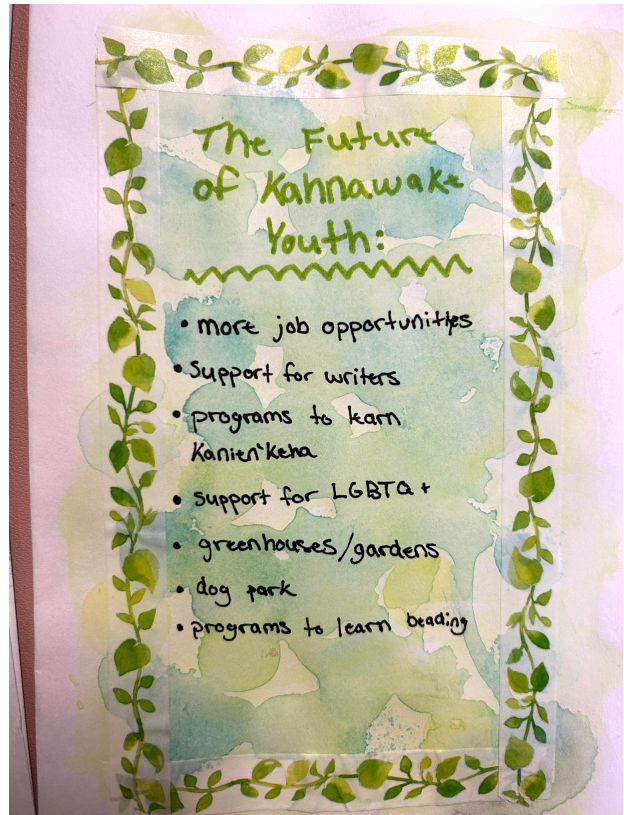 The Future
of Kahnawake
Youth:
• more job opportunities
• Support for writers
• programs to learn
Kanien'Keha
• support for LGBTQ+
• greenhouses/gardens
• dog park
• programs to learn beading